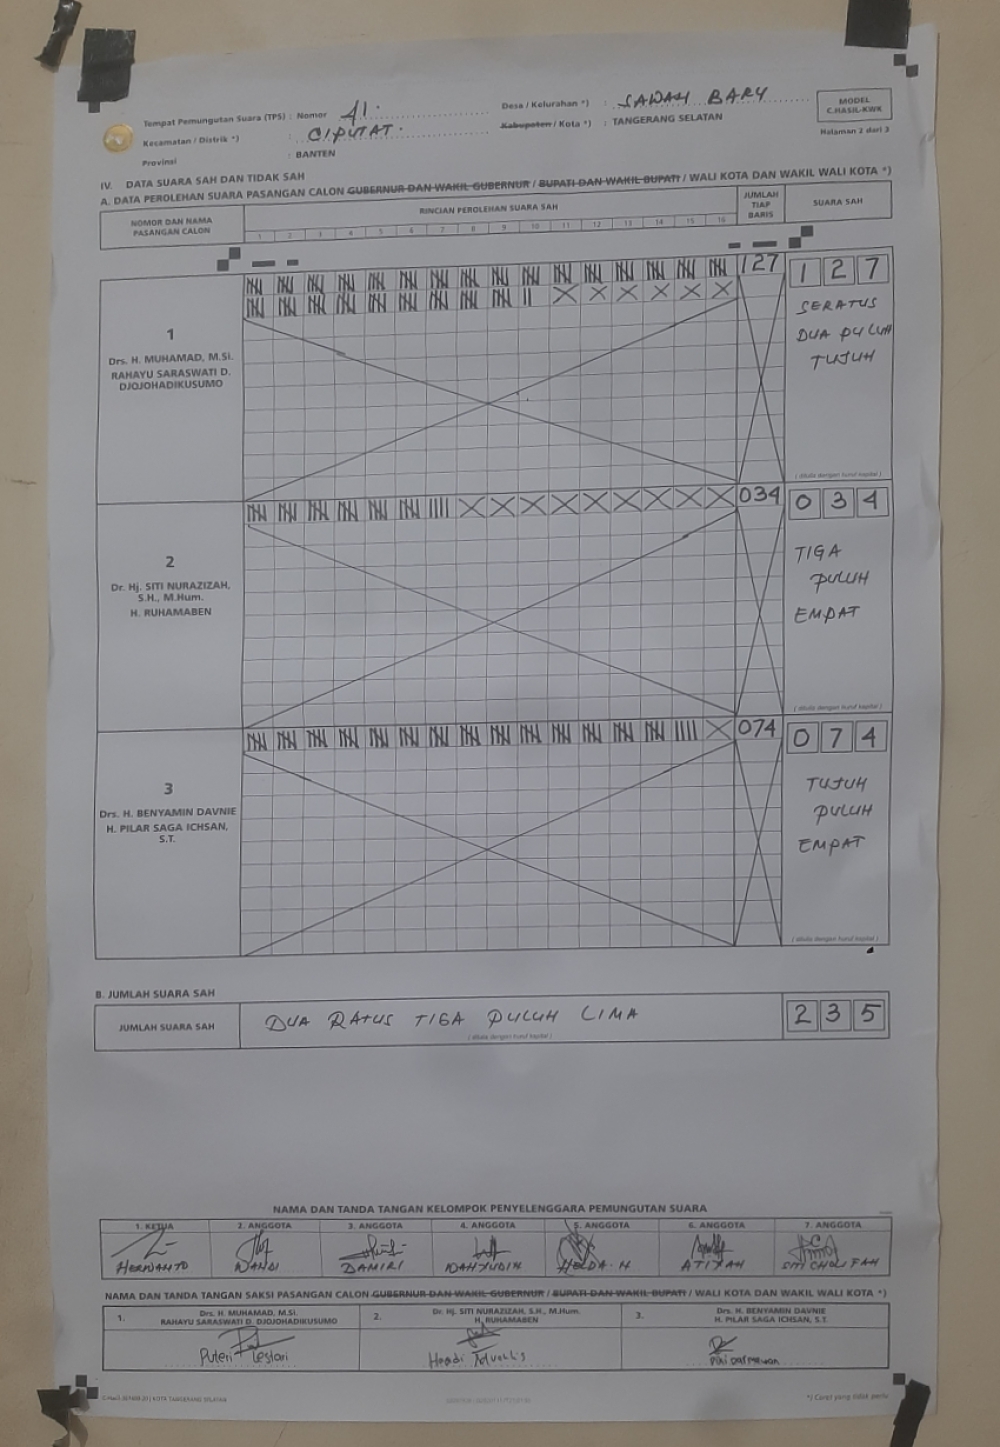 Tempat Pemungutan Suara (TPS) : Nomor 41. Desa / Kelurahan *) : SAWAH BARU
Kecamatan / Distrik *) : CIPUTAT. Kabupaten / Kota *) : TANGERANG SELATAN
Provinsi : BANTEN
MODEL
C.HASIL-KWK
Halaman 2 dari 3
IV. DATA SUARA SAH DAN TIDAK SAH
A. DATA PEROLEHAN SUARA PASANGAN CALON GUBERNUR DAN WAKIL GUBERNUR / BUPATI DAN WAKIL BUPATI / WALI KOTA DAN WAKIL WALI KOTA *)
NOMOR DAN NAMA
PASANGAN CALON
RINCIAN PEROLEHAN SUARA SAH
1 2 3 4 5 6 7 8 9 10 11 12 13 14 15 16
JUMLAH
TIAP
BARIS
SUARA SAH
1
Drs. H. MUHAMAD, M.Si.
RAHAYU SARASWATI D.
DJOJOHADIKUSUMO
127
1 2 7
SERATUS
DUA PULUH
TUJUH
( ditulis dengan huruf kapital )
2
Dr. Hj. SITI NURAZIZAH,
S.H., M.Hum.
H. RUHAMABEN
034
0 3 4
TIGA
PULUH
EMPAT
( ditulis dengan huruf kapital )
3
Drs. H. BENYAMIN DAVNIE
H. PILAR SAGA ICHSAN,
S.T.
074
0 7 4
TUJUH
PULUH
EMPAT
( ditulis dengan huruf kapital )
B. JUMLAH SUARA SAH
JUMLAH SUARA SAH
DUA RATUS TIGA PULUH LIMA
( ditulis dengan huruf kapital )
2 3 5
NAMA DAN TANDA TANGAN KELOMPOK PENYELENGGARA PEMUNGUTAN SUARA
1. KETUA 2. ANGGOTA 3. ANGGOTA 4. ANGGOTA 5. ANGGOTA 6. ANGGOTA 7. ANGGOTA
HERWANTO DAMIRI WAHYUDIN HELDA. M SITI CHOLIFAH
NAMA DAN TANDA TANGAN SAKSI PASANGAN CALON GUBERNUR DAN WAKIL GUBERNUR / BUPATI DAN WAKIL BUPATI / WALI KOTA DAN WAKIL WALI KOTA *)
1. Drs. H. MUHAMAD, M.Si.
RAHAYU SARASWATI D. DJOJOHADIKUSUMO
2. Dr. Hj. SITI NURAZIZAH, S.H., M.Hum.
H. RUHAMABEN
3. Drs. H. BENYAMIN DAVNIE
H. PILAR SAGA ICHSAN, S.T.
Puteri Lestari
KOTA TANGERANG SELATAN
*) Coret yang tidak perlu